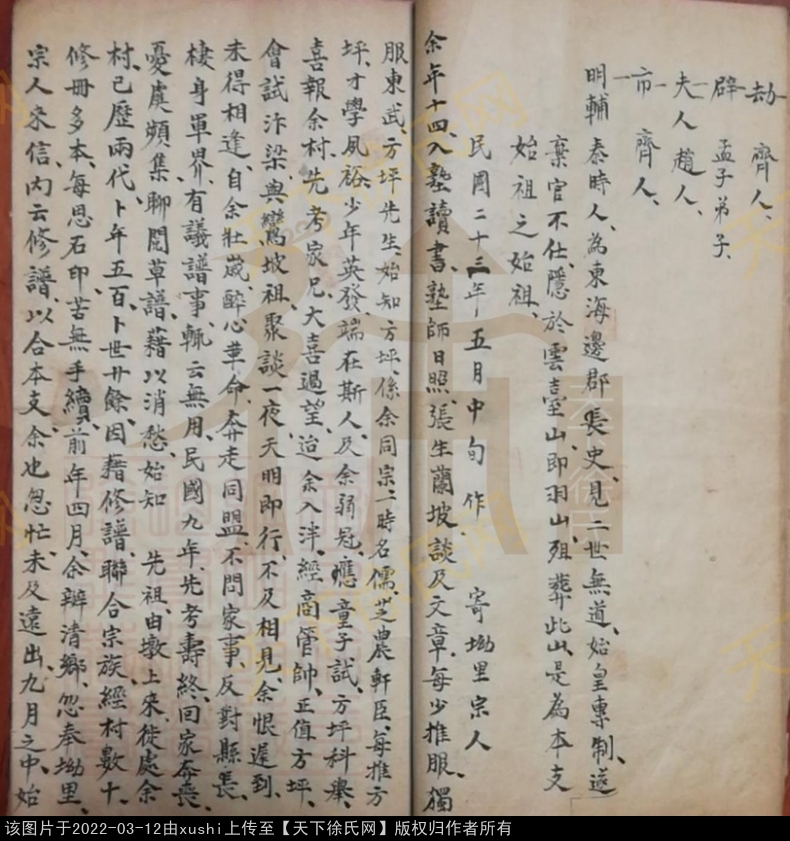 劫 齊人、
辟 孟子弟子、
夫人趙人、
市 齊人、
明輔 秦時人、為東海邊郡長史、見二世無道、始皇專制、遂
棄官不仕、隱於雲臺山、即羽山、殂葬此山、是為本支
始祖之始祖、
民國二十三年五月中旬作、 寄坳里宗人
余年十四、入塾讀書、塾師日照、張生蘭坡、談及文章、每少推服、獨
服東武、方坪先生、始知方坪、係余同宗、一時名儒、芝農軒臣、每推方
坪、才學夙裕、少年英發、端在斯人、及余弱冠、應童子試、方坪科舉、
喜報余村、先考家兄、大喜過望、迨余入泮、經商管帥、正值方坪、
會試汴梁、與鸞坡祖、聚談一夜、天明即行、不及相見、余恨遲到、
未得相逢、自余壯歲、醉心革命、奔走同盟、不問家事、反對縣長、
棲身軍界、有議譜事、輒云無用、民國九年、先考壽終、回家奔喪、
憂虞頻集、聊閱草譜、藉以消愁、始知 先祖、由墩上來、徙處余
村、已歷兩代、卜年五百、卜世廿餘、因藉修譜、聯合宗族、經村數十、
修冊多本、每思石印、苦無手續、前年四月、余辦清鄉、忽奉坳里、
宗人來信、內云修譜、以合本支、余也忽忙、未及遠出、九月之中、始
该图片于2022-03-12由xushi上传至【天下徐氏网】版权归作者所有